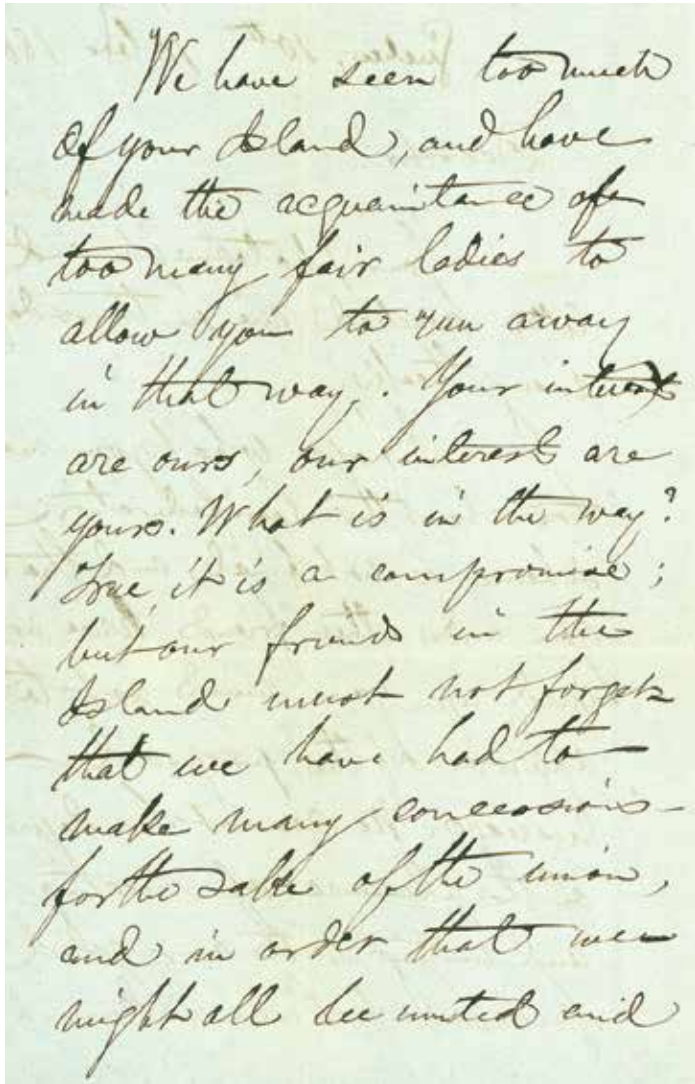 We have seen too much
of your Island, and have
made the acquaintance of
too many fair ladies to
allow you to run away
in that way. Your interests
are ours, our interests are
yours. What is in the way?
True, it is a compromise;
but our friends in the
Island must not forget
that we have had to
make many concessions
for the sake of the union,
and in order that we
might all be united and